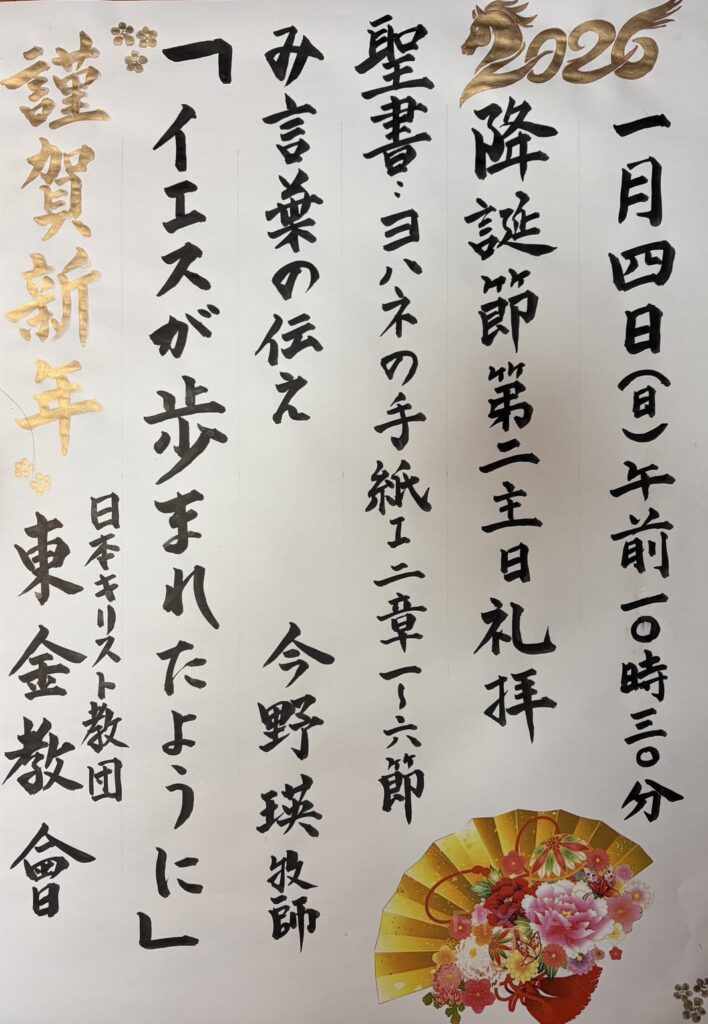 2026
一月四日(日)午前一〇時三〇分
降誕節第二主日礼拝
聖書:ヨハネの手紙Ⅰ二章一~六節
み言葉の伝え 今野瑛牧師
「イエスが歩まれたように」
謹賀新年
日本キリスト教団
東金教會